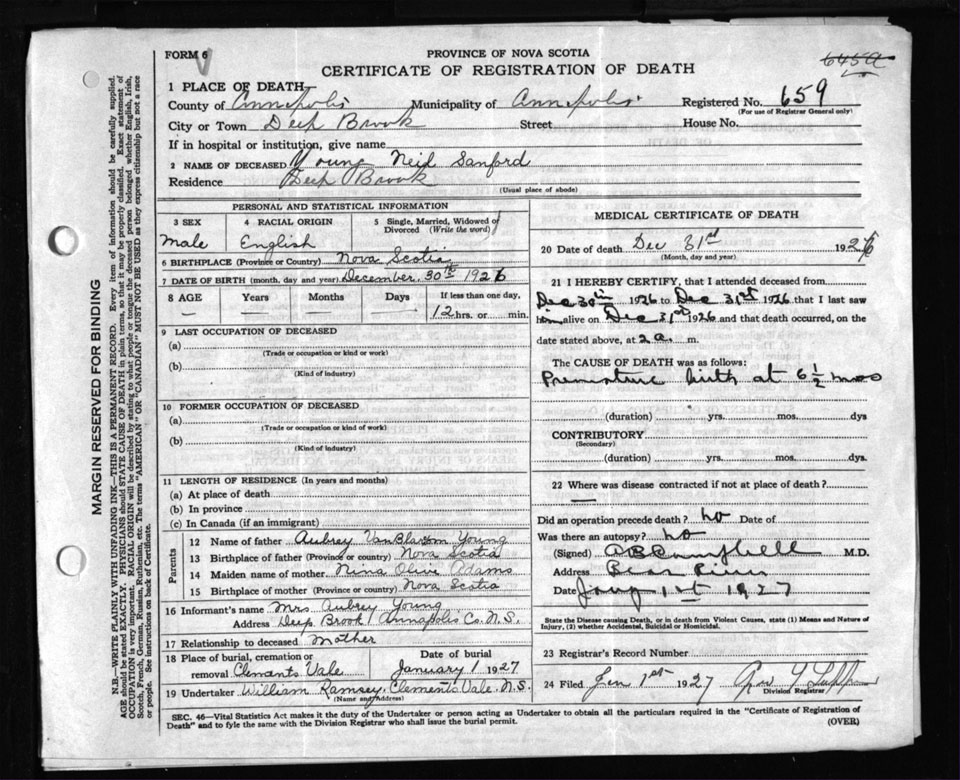 FORM 6
PROVINCE OF NOVA SCOTIA
CERTIFICATE OF REGISTRATION OF DEATH
645a
1 PLACE OF DEATH
County of Annapolis Municipality of Annapolis Registered No. 659
(For use of Registrar General only)
City or Town Deep Brook Street House No.
If in hospital or institution, give name
2 NAME OF DECEASED Young Neil Sanford
Residence Deep Brook
(Usual place of abode)
PERSONAL AND STATISTICAL INFORMATION
3 SEX
Male
4 RACIAL ORIGIN
English
5 Single, Married, Widowed or Divorced (Write the word)
6 BIRTHPLACE (Province or Country) Nova Scotia
7 DATE OF BIRTH (month, day and year) December 30th 1926
8 AGE Years Months Days If less than one day,
— — — — 12 hrs. or min.
9 LAST OCCUPATION OF DECEASED
(a)
(Trade or occupation or kind or work)
(b)
(Kind of industry)
10 FORMER OCCUPATION OF DECEASED
(a)
(Trade or occupation or kind of work)
(b)
(Kind of industry)
11 LENGTH OF RESIDENCE (In years and months)
(a) At place of death
(b) In province
(c) In Canada (if an immigrant)
Parents
12 Name of father Aubrey VanBlarcom Young
13 Birthplace of father (Province or country) Nova Scotia
14 Maiden name of mother Nina Olive Adams
15 Birthplace of mother (Province or country) Nova Scotia
16 Informant's name Mrs Aubrey Young
Address Deep Brook Annapolis Co. N.S.
17 Relationship to deceased Mother
18 Place of burial, cremation or removal Clements Vale
Date of burial
January 1 1927
19 Undertaker William Ramsey, Clements Vale. N.S.
(Name and Address)
MEDICAL CERTIFICATE OF DEATH
20 Date of death Dec 31st 1926
(Month, day and year)
21 I HEREBY CERTIFY, that I attended deceased from
Dec 30th 1926 to Dec 31st 1926 that I last saw
him alive on Dec 31st 1926 and that death occurred, on the
date stated above, at 2 a. m.
The CAUSE OF DEATH was as follows:
Premature birth at 6 1/2 mos
(duration) yrs. mos. dys
CONTRIBUTORY
(Secondary)
(duration) yrs. mos. dys.
22 Where was disease contracted if not at place of death?
—
Did an operation precede death? No Date of
Was there an autopsy? No
(Signed) A B Campbell M.D.
Address Bear River
Date Jany 1st 1927
State the Disease causing Death, or in death from Violent Causes, state (1) Means and Nature of
Injury, (2) whether Accidental, Suicidal or Homicidal.
23 Registrar's Record Number
24 Filed Jan 1st 1927
Division Registrar
SEC. 46—Vital Statistics Act makes it the duty of the Undertaker or person acting as Undertaker to obtain all the particulars required in the "Certificate of Registration of
Death" and to fyle the same with the Division Registrar who shall issue the burial permit.
(OVER)
MARGIN RESERVED FOR BINDING
N.B.—WRITE PLAINLY WITH UNFADING INK—THIS IS A PERMANENT RECORD. Every item of information should be carefully supplied.
AGE should be stated EXACTLY. PHYSICIANS should STATE CAUSE OF DEATH in plain terms, so that it may be properly classified. Exact statement of
OCCUPATION is very important. RACIAL ORIGIN will be described by stating to what people or tongue the deceased person belonged whether English, Irish,
Scotch, French, German, Russian, Ruthenian, etc. The terms "AMERICAN" OR "CANADIAN" MUST NOT BE USED as they express citizenship but not a race
or people. See instructions on back of Certificate.